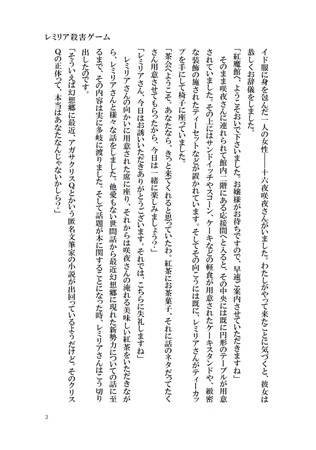 レミリア殺害ゲーム
イド服に身を包んだ一人の女性――十六夜咲夜さんがいました。わたしがやって来たことに気づくと、彼女は
恭しくお辞儀をしました。
「紅魔館へようこそおいで下さいました。お嬢様がお待ちですので、早速ご案内させていただきますね」
そのまま咲夜さんに連れられて館内一階にある応接間へ入ると、その中央には既に円形のテーブルが用意
されていました。その上にはサンドイッチやスコーン、ケーキなどの軽食が用意されたケーキスタンドや、緻密
な装飾の施されたティーセットなどが置かれています。そしてその向こうには既に、レミリアさんがティーカッ
プを手にして椅子に座っていました。
「茶会へようこそ。あなたなら、きっと来てくれると思っていたわ。紅茶にお茶菓子、それに話のネタだってたく
さん用意させてもらったから、今日は一緒に楽しみましょう？」
「レミリアさん、今日はお誘いいただきありがとうございます。それでは、こちらに失礼しますね」
レミリアさんの向かいに用意された席に座り、それからは咲夜さんの淹れる美味しい紅茶をいただきなが
ら、レミリアさんと様々な話をしました。他愛もない世間話から最近幻想郷に現れた新勢力についての話に至
るまで、その内容は実に多岐に渡りました。そして話題が本に関することになった時、レミリアさんはこう切り
出したのです。
「そういえば幻想郷に最近、アガサクリスＱとかいう匿名文筆家の小説が出回っているようだけど、そのクリス
Ｑの正体って、本当はあなたなんじゃないかしら？」
3